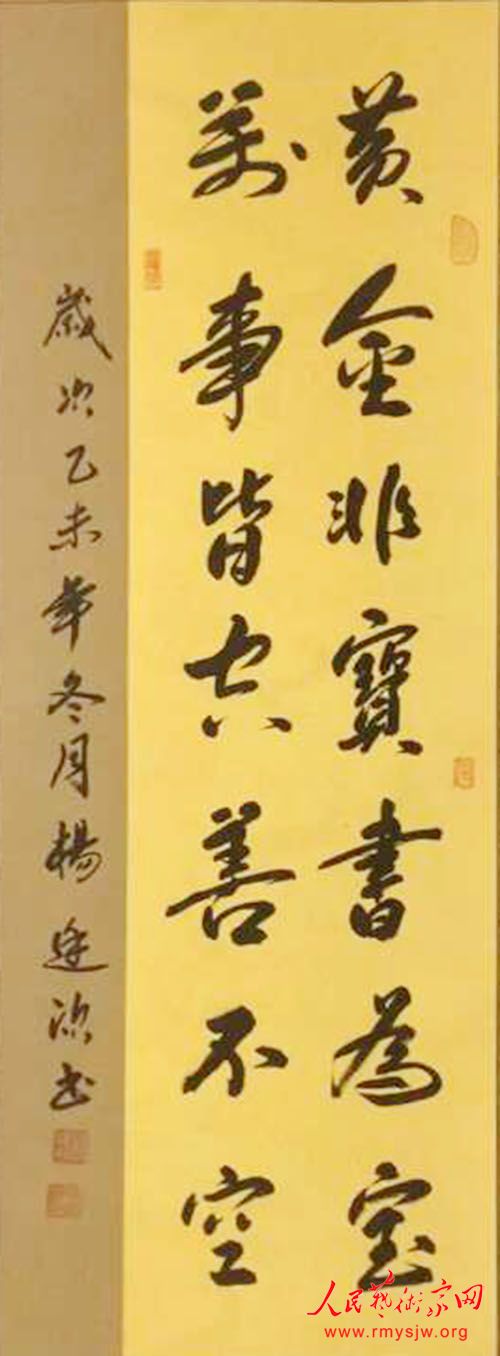 黄金非寶書為宝
萬事皆空善不空
歲次乙未年冬月楊
书
人民藝術家网
www.rmysjw.org